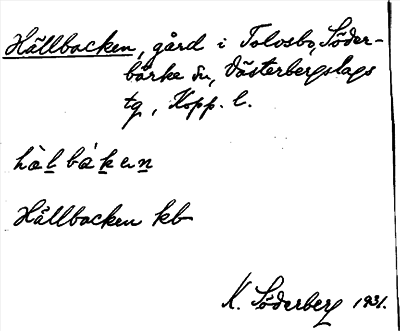 Hällbacken, gård i Tolvsbo, Söder-
bärke sn, Västerbergslags
tg, Kopp. l.
hὰl báken
Hällbacken kb
K. Söderberg 1931.